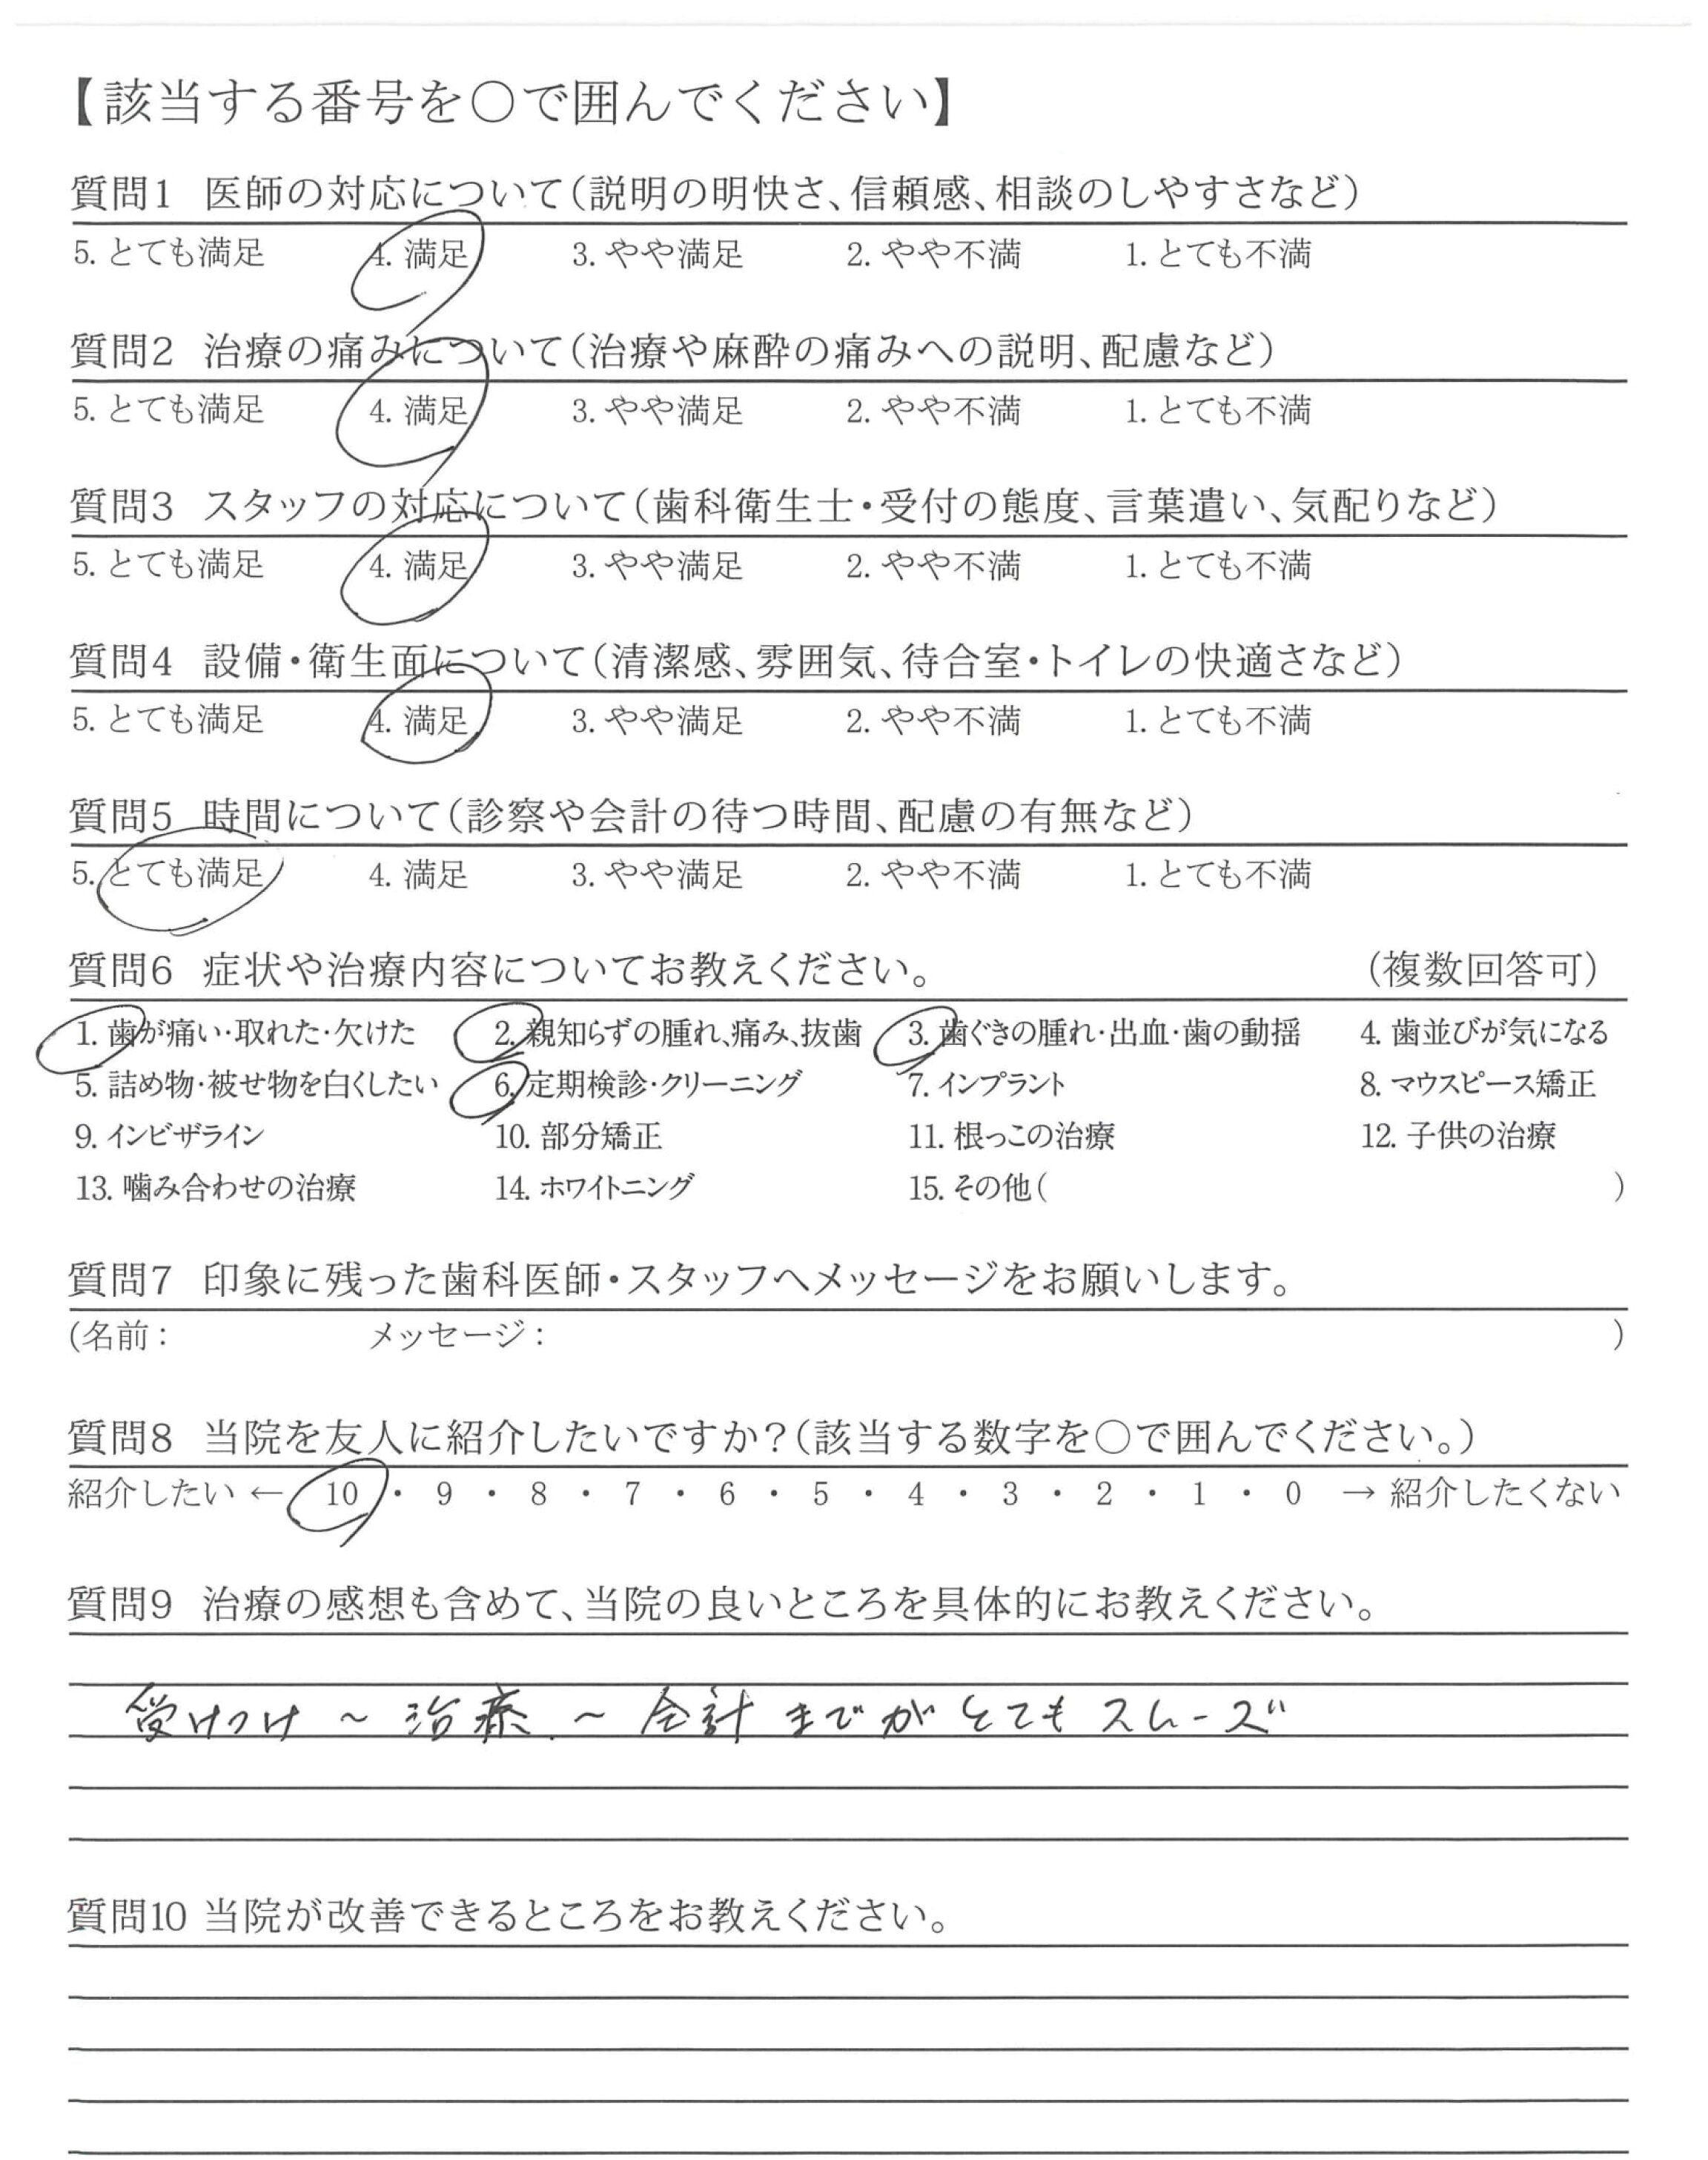 【該当する番号を〇で囲んでください】
質問1 医師の対応について(説明の明快さ、信頼感、相談のしやすさなど)
5. とても満足 4. 満足 3. やや満足 2. やや不満 1. とても不満
質問2 治療の痛みについて(治療や麻酔の痛みへの説明、配慮など)
5. とても満足 4. 満足 3. やや満足 2. やや不満 1. とても不満
質問3 スタッフの対応について(歯科衛生士・受付の態度、言葉遣い、気配りなど)
5. とても満足 4. 満足 3. やや満足 2. やや不満 1. とても不満
質問4 設備・衛生面について(清潔感、雰囲気、待合室・トイレの快適さなど)
5. とても満足 4. 満足 3. やや満足 2. やや不満 1. とても不満
質問5 時間について(診察や会計の待つ時間、配慮の有無など)
5. とても満足 4. 満足 3. やや満足 2. やや不満 1. とても不満
質問6 症状や治療内容についてお教えください。 (複数回答可)
1. 歯が痛い・取れた・欠けた 2. 親知らずの腫れ、痛み、抜歯 3. 歯ぐきの腫れ・出血・歯の動揺 4. 歯並びが気になる
5. 詰め物・被せ物を白くしたい 6. 定期検診・クリーニング 7. インプラント 8. マウスピース矯正
9. インビザライン 10. 部分矯正 11. 根っこの治療 12. 子供の治療
13. 噛み合わせの治療 14. ホワイトニング 15. その他( )
質問7 印象に残った歯科医師・スタッフへメッセージをお願いします。
(名前: メッセージ: )
質問8 当院を友人に紹介したいですか?(該当する数字を〇で囲んでください。)
紹介したい ← 10 ・ 9 ・ 8 ・ 7 ・ 6 ・ 5 ・ 4 ・ 3 ・ 2 ・ 1 ・ 0 → 紹介したくない
質問9 治療の感想も含めて、当院の良いところを具体的にお教えください。
受けつけ ~ 治療 ~ 会計までがとてもスムーズ
質問10 当院が改善できるところをお教えください。